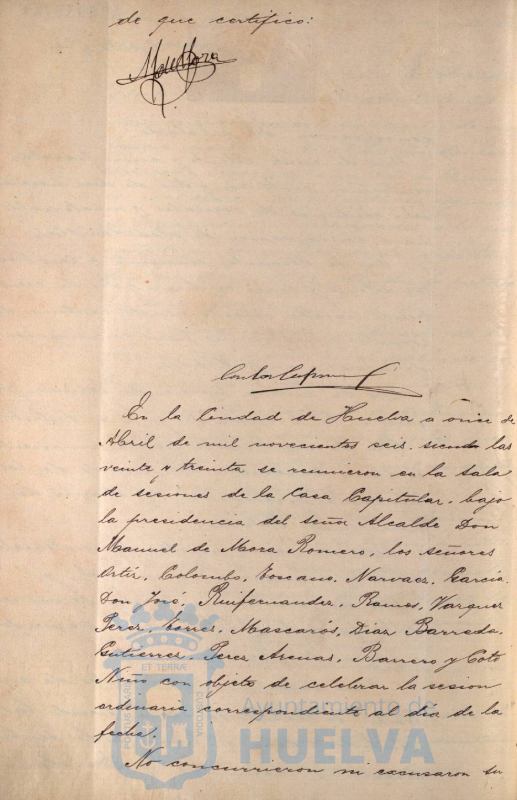 de que certifico:
M de Mora
En la Ciudad de Huelva a once de
Abril de mil novecientos seis, siendo las
veinte y treinta se reunieron en la sala
de sesiones de la Casa Capitular, bajo
la presidencia del señor Alcalde Don
Manuel de Mora Romero, los señores
Ortiz, Colombo, Toscano, Narvaez, García
Don José, Ruifernandez, Ramos, Vazquez
Perez, Torres, Mascarós, Diaz Barreda,
Gutierrez, Perez Arenas, Barrero y Coto
Niño con objeto de celebrar la sesion
ordinaria correspondiente al dia de la
fecha.
No concurrieron ni excusaron su
ET TERRÆ
CUSTODIA
Ayuntamiento de
HUELVA